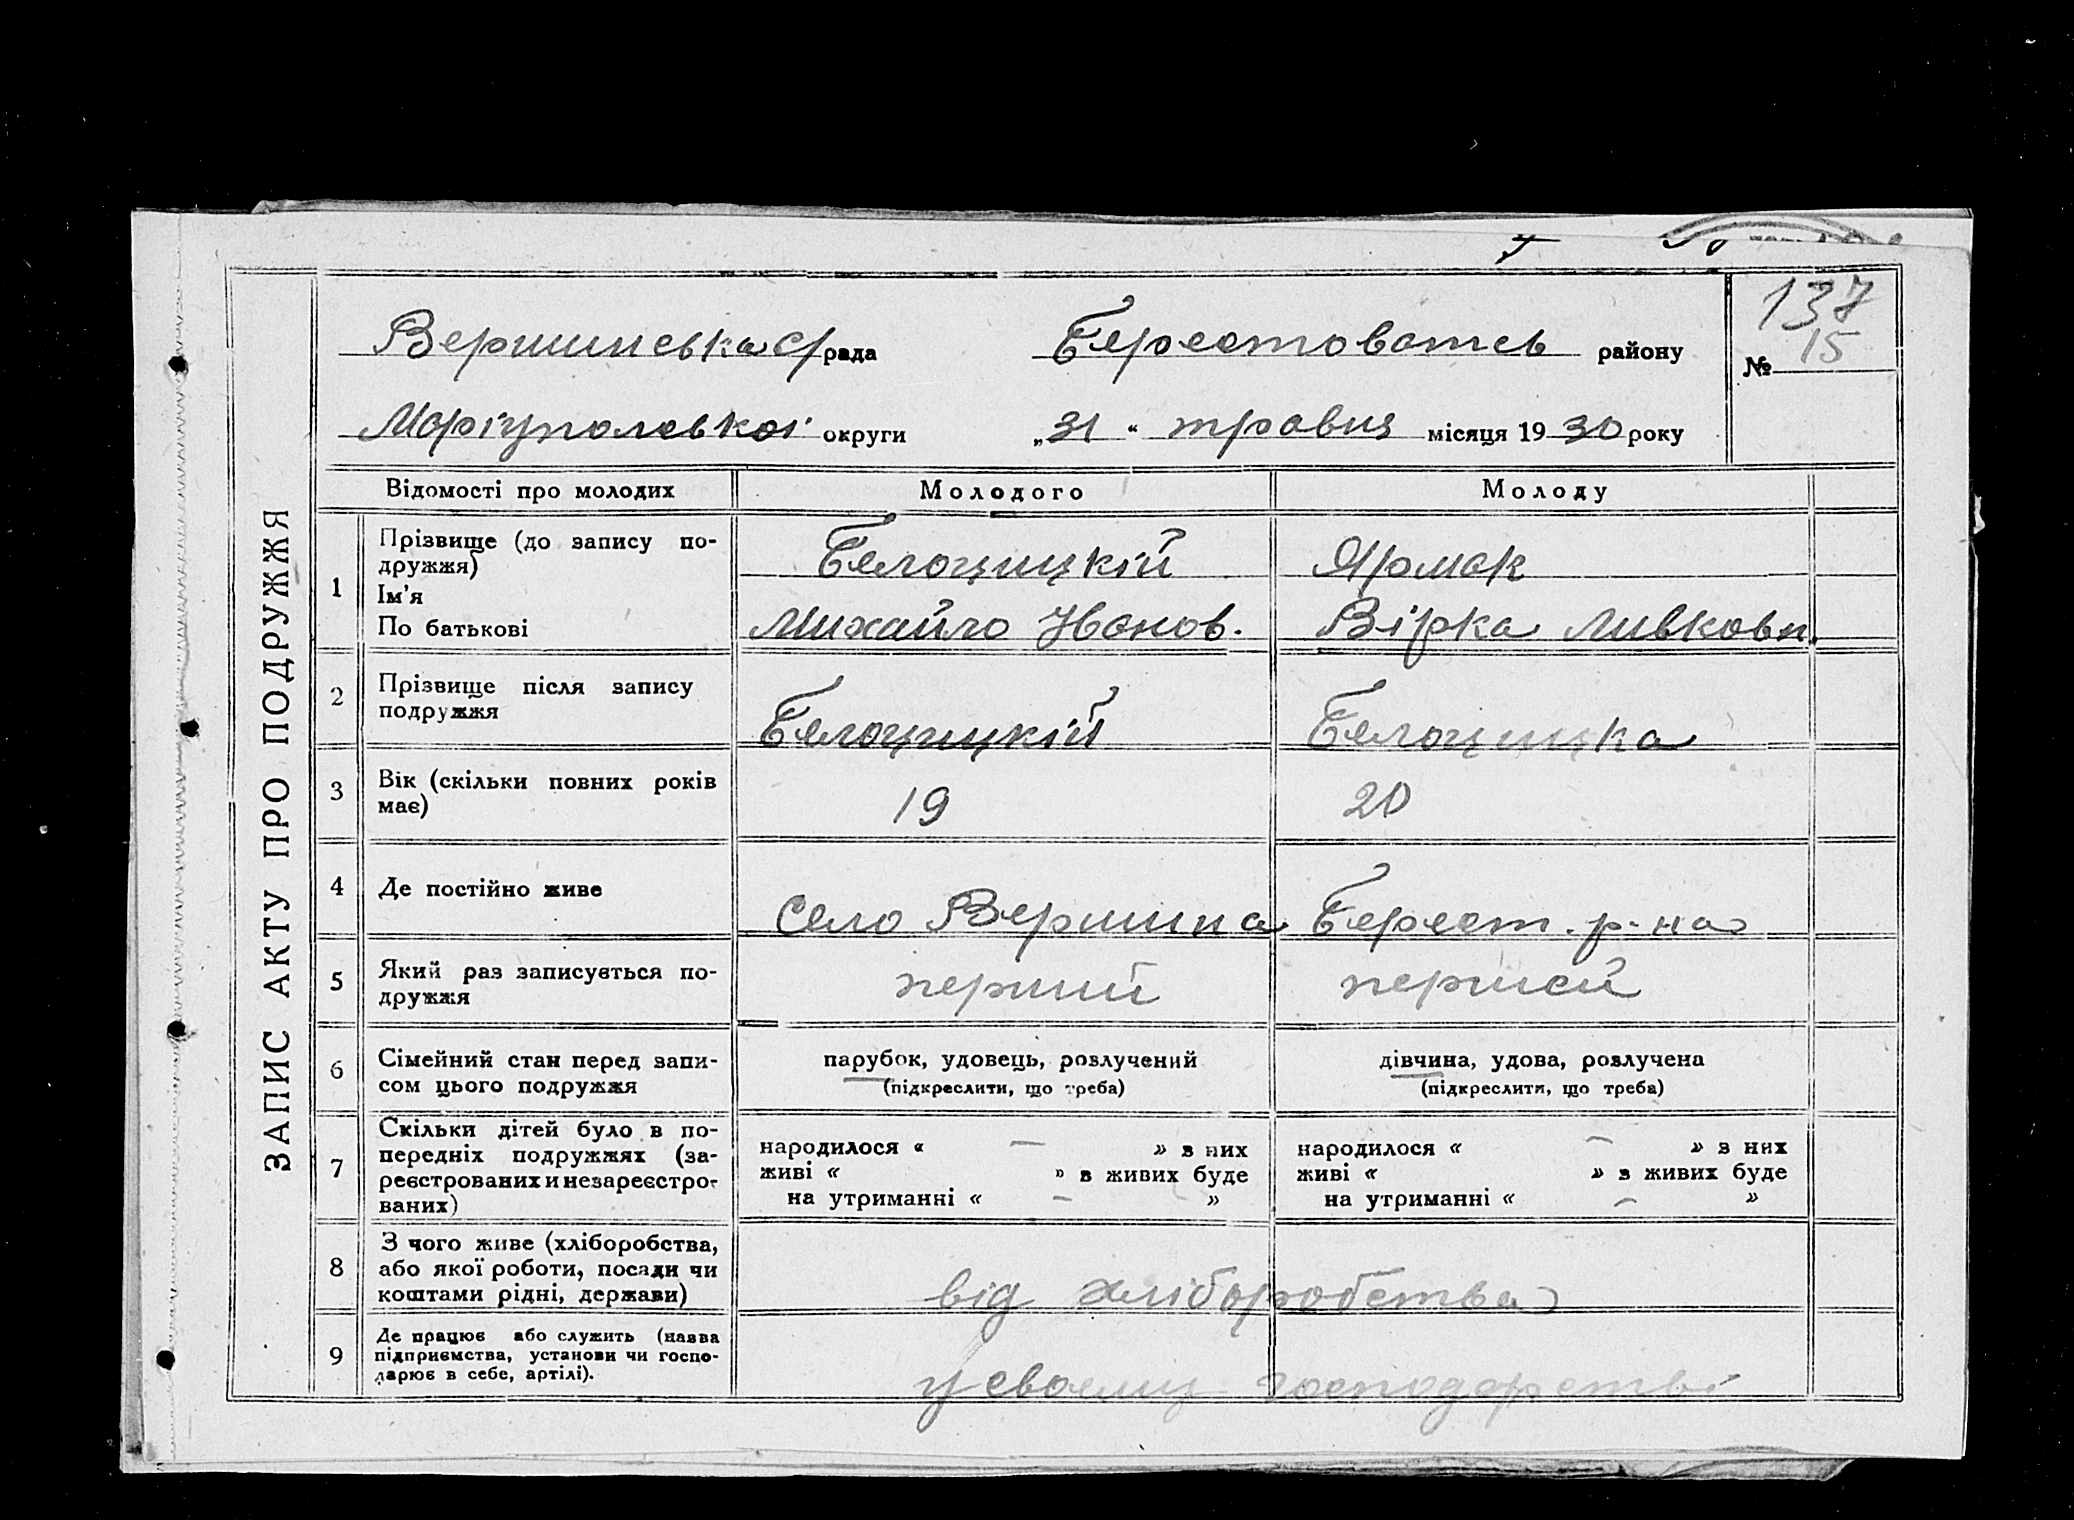 137
Вершинська с/рада Берестоватсь району № 15
Маріупольської округи „31“ травня місяця 1930 року
ЗАПИС АКТУ ПРО ПОДРУЖЖЯ
Відомості про молодих Молодого Молоду
1 Прізвище (до запису по-
дружжя) Белоцицкій Ярмак
Ім'я
По батькові Михайло Іванов. Вірка Ливковн.
2 Прізвище після запису
подружжя Белоцицкій Белоцицка
3 Вік (скільки повних років
має) 19 20
4 Де постійно живе Село Вершина Берест. р-на
5 Який раз записується по-
дружжя перший перший
6 Сімейний стан перед запи-
сом цього подружжя
парубок, удовець, розлучений дівчина, удова, розлучена
(підкреслити, що треба) (підкреслити, що треба)
7 Скільки дітей було в по-
передніх подружжях (за-
реєстрованих и незареєстро-
ваних)
народилося « — » з них народилося « — » з них
живі « » з живих буде живі « » з живих буде
на утриманні « — » на утриманні « — »
8 З чого живе (хліборобства,
або якої роботи, посади чи
коштами рідні, держави) від хліборобства
9 Де працює або служить (назва
підприємства, установи чи госпо-
дарює в себе, артілі). у своему господарстві